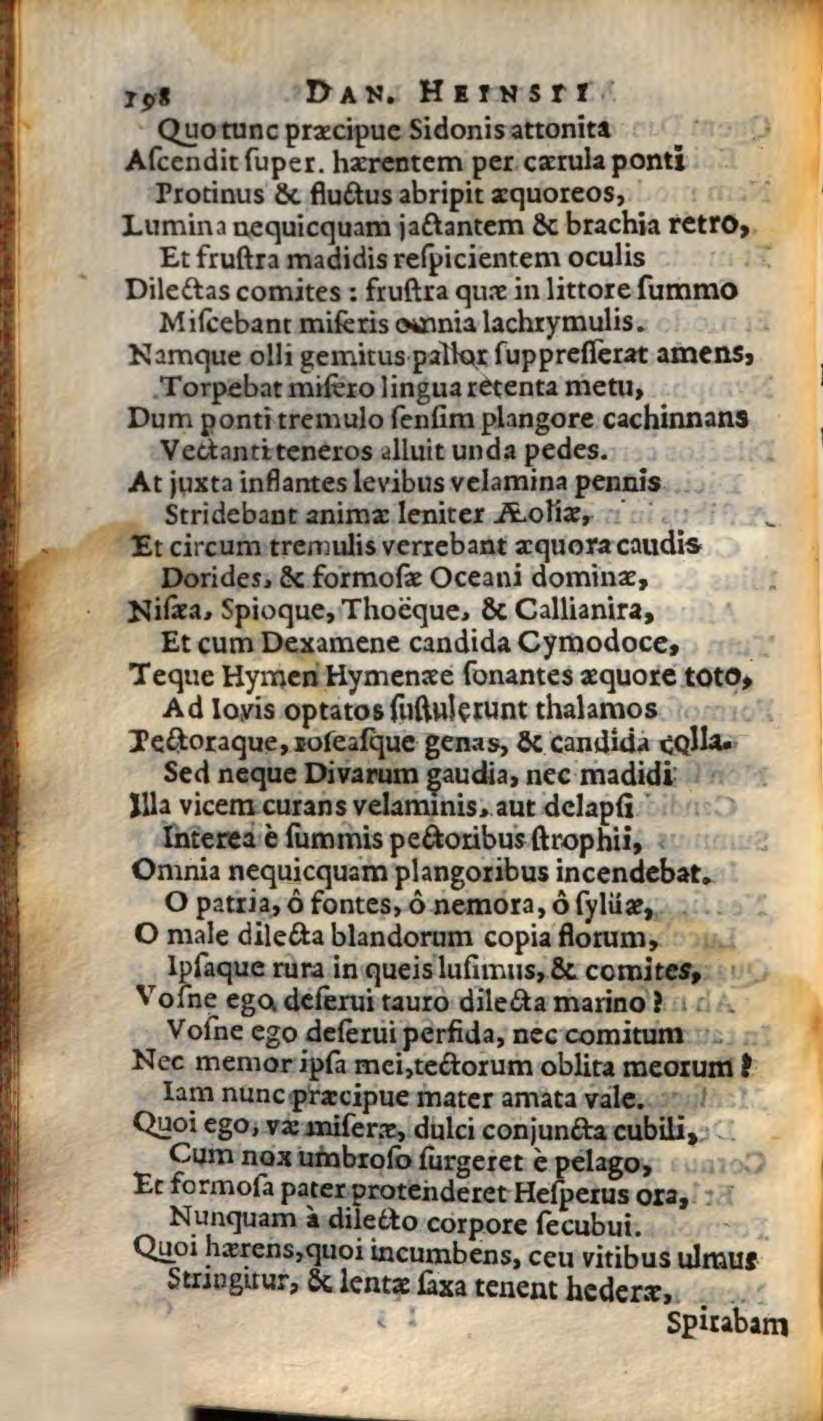 198 DAN. HEINSII
Quo tunc præcipue Sidonis attonita
Aſcendit ſuper. hærentem per cærula ponti
Protinus & fluctus abripit æquoreos,
Lumina nequicquam jactantem & brachia retro,
Et fruſtra madidis reſpicientem oculis
Dilectas comites : fruſtra quæ in littore ſummo
Miſcebant miſeris omnia lachrymulis.
Namque olli gemitus pallor ſuppreſſerat amens,
Torpebat miſero lingua retenta metu,
Dum ponti tremulo ſenſim plangore cachinnans
Vectanti teneros alluit unda pedes.
At juxta inflantes levibus velamina pennis
Stridebant animæ leniter Æoliæ,
Et circum tremulis verrebant æquora caudis
Dorides, & formoſæ Oceani dominæ,
Niſæa, Spioque, Thoëque, & Callianira,
Et cum Dexamene candida Cymodoce,
Teque Hymen Hymenæe ſonantes æquore toto,
Ad Iovis optatos ſuſtulerunt thalamos
Pectoraque, roſeaſque genas, & candida colla.
Sed neque Divarum gaudia, nec madidi
Illa vicem curans velaminis, aut delapſi
Interea è ſummis pectoribus ſtrophii,
Omnia nequicquam plangoribus incendebat.
O patria, ô fontes, ô nemora, ô ſylüæ,
O male dilecta blandorum copia florum,
Ipſaque rura in queis luſimus, & comites,
Voſne ego deſerui tauro dilecta marino?
Voſne ego deſerui perfida, nec comitum
Nec memor ipſa mei, tectorum oblita meorum?
Iam nunc præcipue mater amata vale.
Quoi ego, væ miſeræ, dulci conjuncta cubili,
Cum nox umbroſo ſurgeret è pelago,
Et formoſa pater protenderet Heſperus ora,
Nunquam à dilecto corpore ſecubui.
Quoi hærens, quoi incumbens, ceu vitibus ulmus
Stringitur, & lentæ ſaxa tenent hederæ,
Spirabam